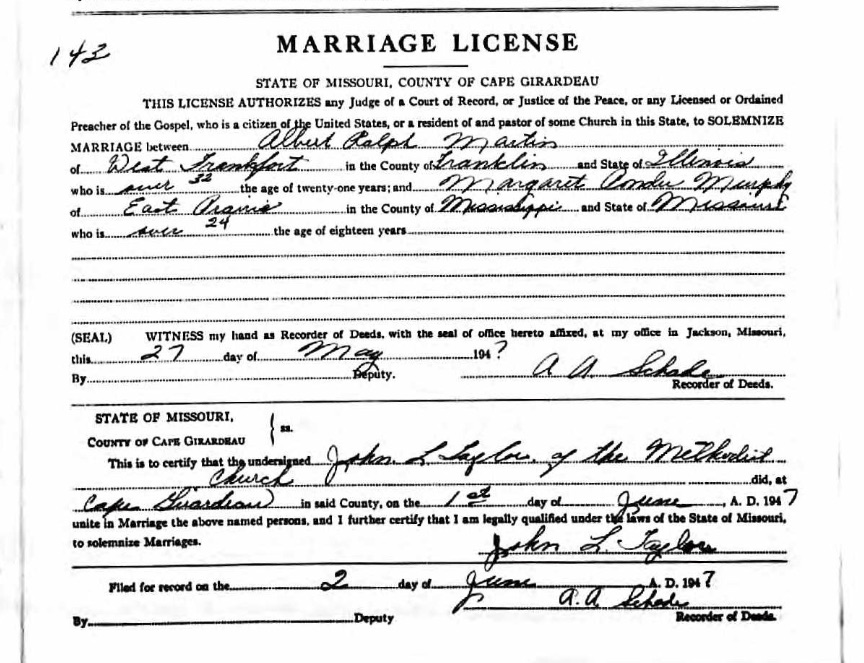 143
MARRIAGE LICENSE
STATE OF MISSOURI, COUNTY OF CAPE GIRARDEAU
THIS LICENSE AUTHORIZES any Judge of a Court of Record, or Justice of the Peace, or any Licensed or Ordained
Preacher of the Gospel, who is a citizen of the United States, or a resident of and pastor of some Church in this State, to SOLEMNIZE
MARRIAGE between Albert Ralph Martin
of West Frankfort in the County of Franklin and State of Illinois
who is over 32 the age of twenty-one years; and Margaret Murphy
of East Prairie in the County of Mississippi and State of Missouri
who is over 24 the age of eighteen years
(SEAL) WITNESS my hand as Recorder of Deeds, with the seal of office hereto affixed, at my office in Jackson, Missouri,
this 27 day of May 1947
By Deputy. A A Schade
Recorder of Deeds.
STATE OF MISSOURI,
COUNTY OF CAPE GIRARDEAU ss.
This is to certify that the undersigned John L Taylor, of the Methodist
Church did, at
Cape Girardeau in said County, on the 1st day of June, A. D. 1947
unite in Marriage the above named persons, and I further certify that I am legally qualified under the laws of the State of Missouri,
to solemnize Marriages.
John L. Taylor
Filed for record on the 2 day of June A. D. 1947
A. A Schade
By Deputy Recorder of Deeds.